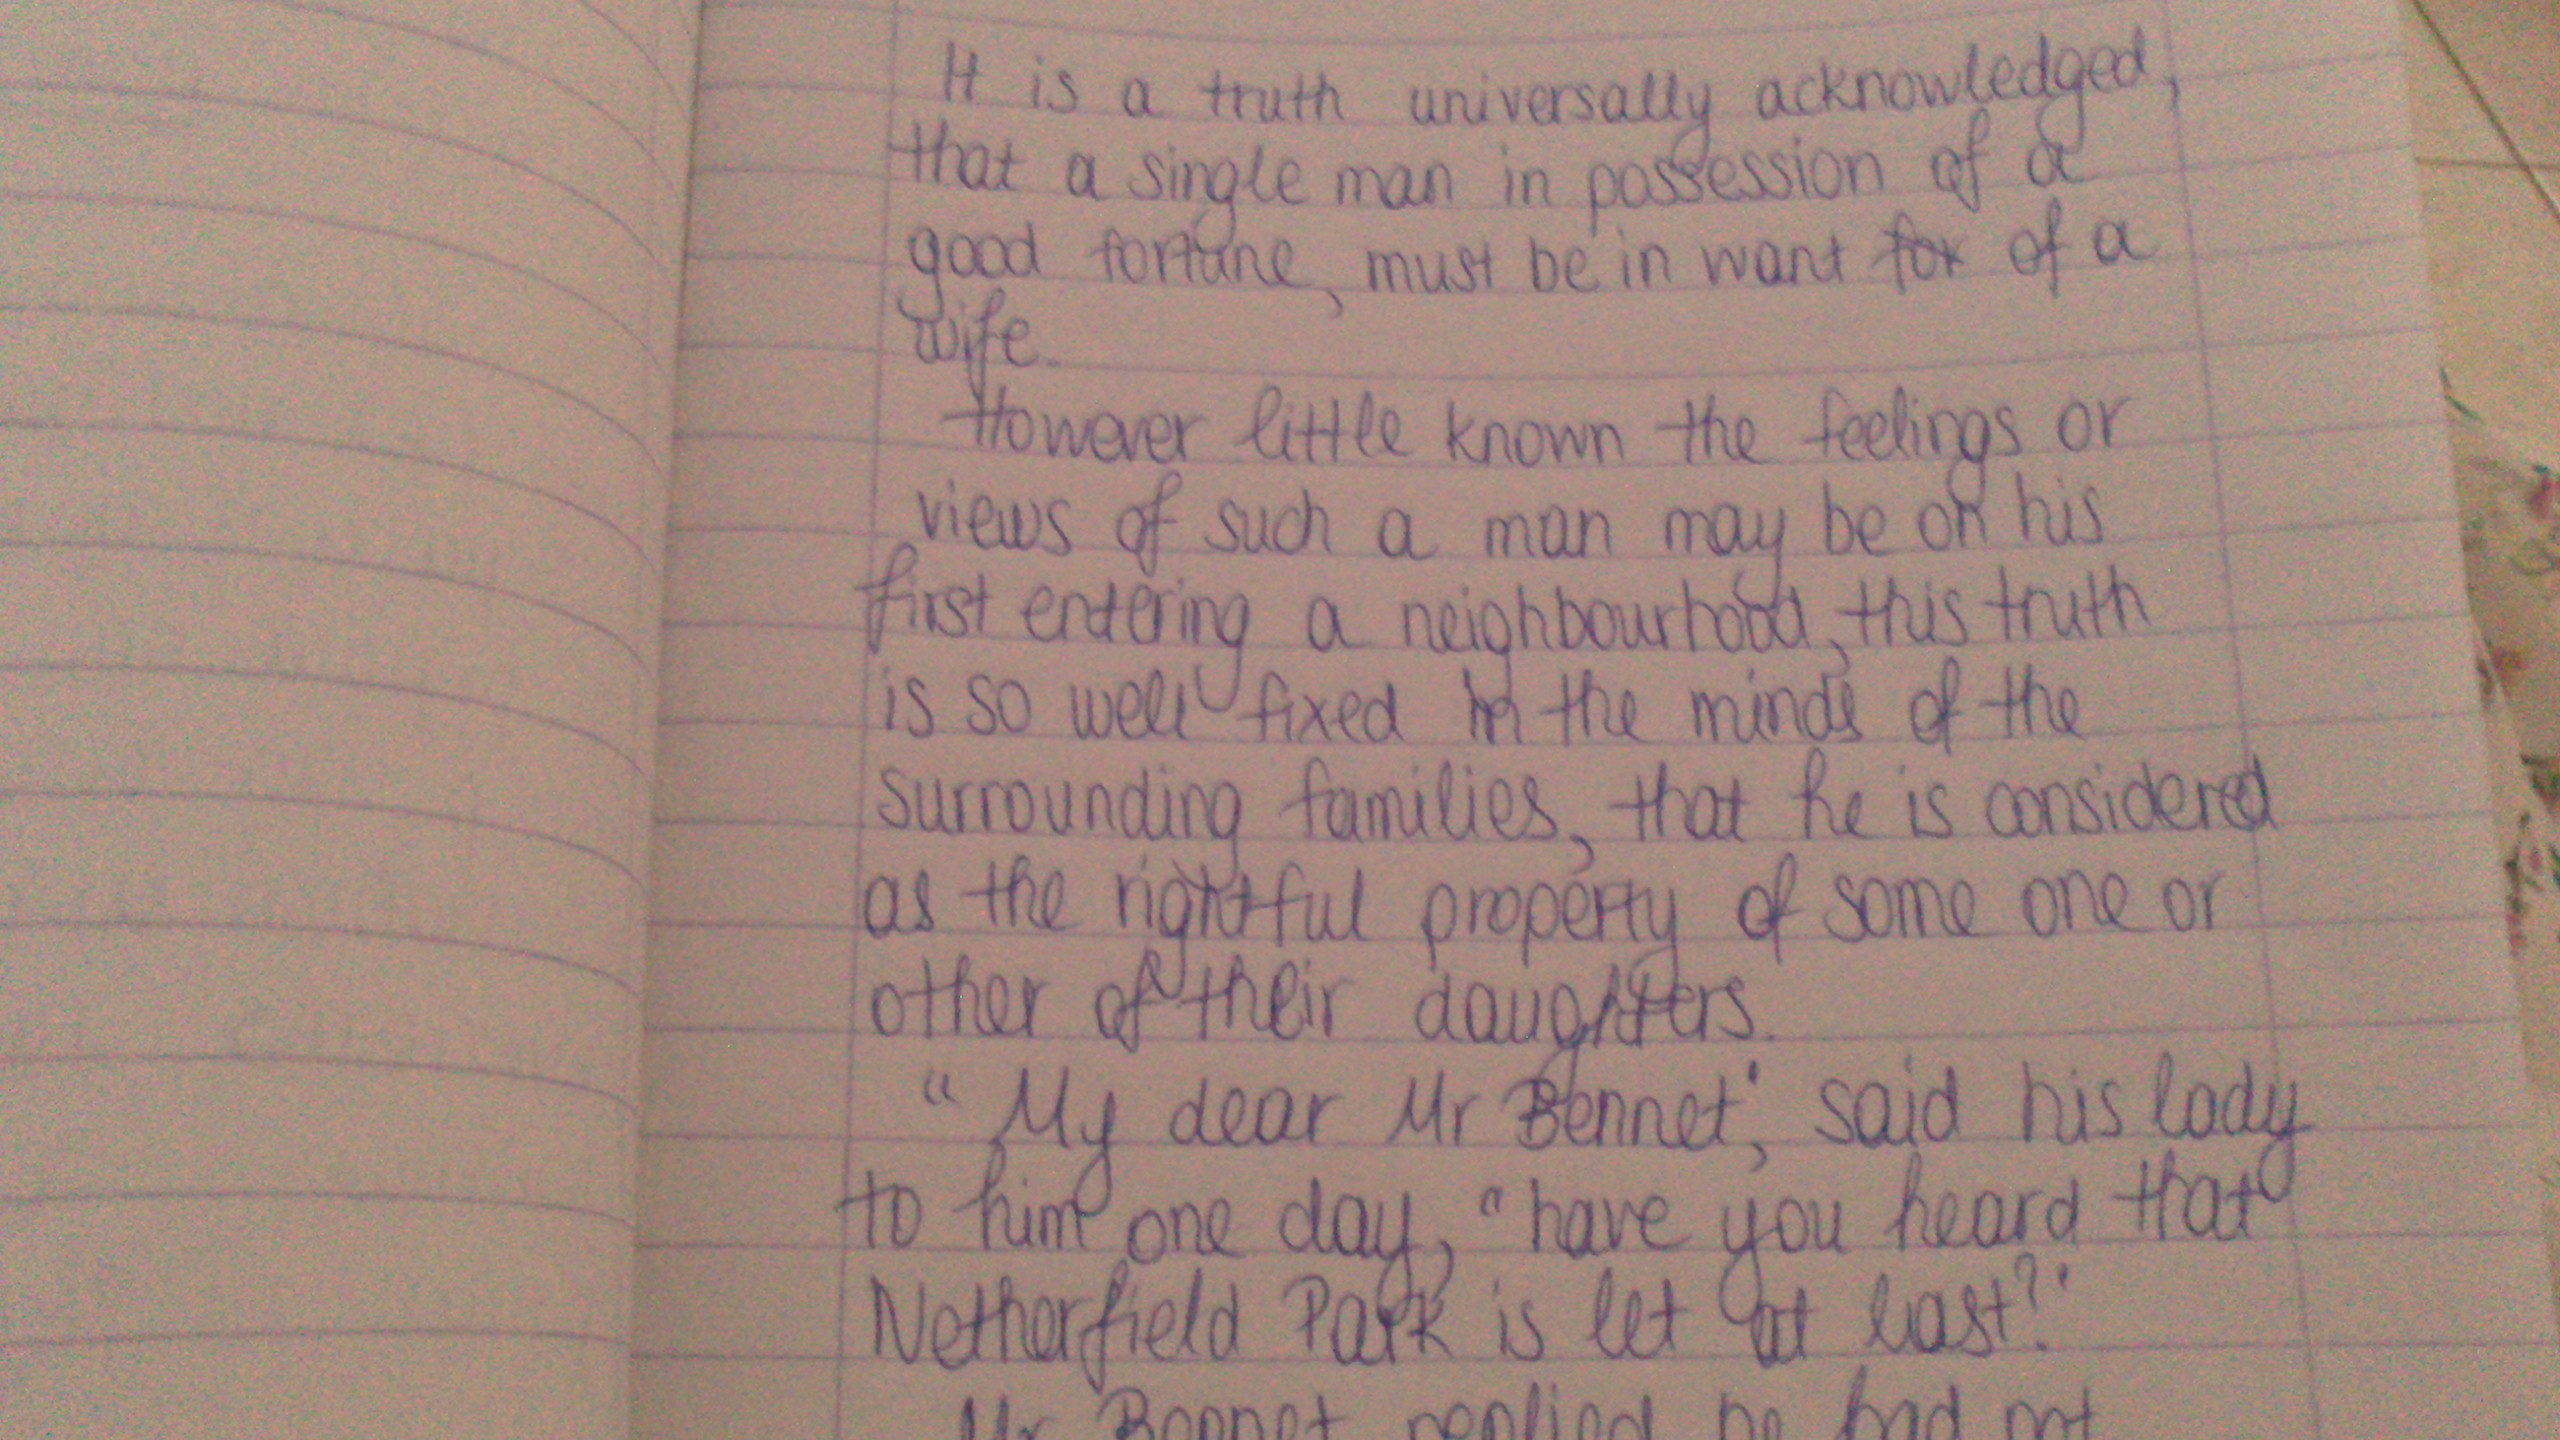 It is a truth universally acknowledged,
that a single man in possession of a
good fortune, must be in want for of a
wife.
However little known the feelings or
views of such a man may be on his
first entering a neighbourhood, this truth
is so well fixed in the minds of the
surrounding families, that he is considered
as the rightful property of some one or
other of their daughters.
"My dear Mr Bennet", said his lady
to him one day, "have you heard that
Netherfield Park is let at last?"
Mr Bennet replied he had not